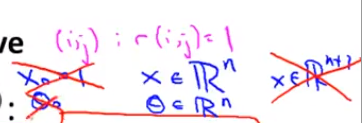 ve (i,j) : r(i,j)=1
x₀=1 x ∈ ℝⁿ x ∈ ℝⁿ⁺¹
: θ₀ θ ∈ ℝⁿ